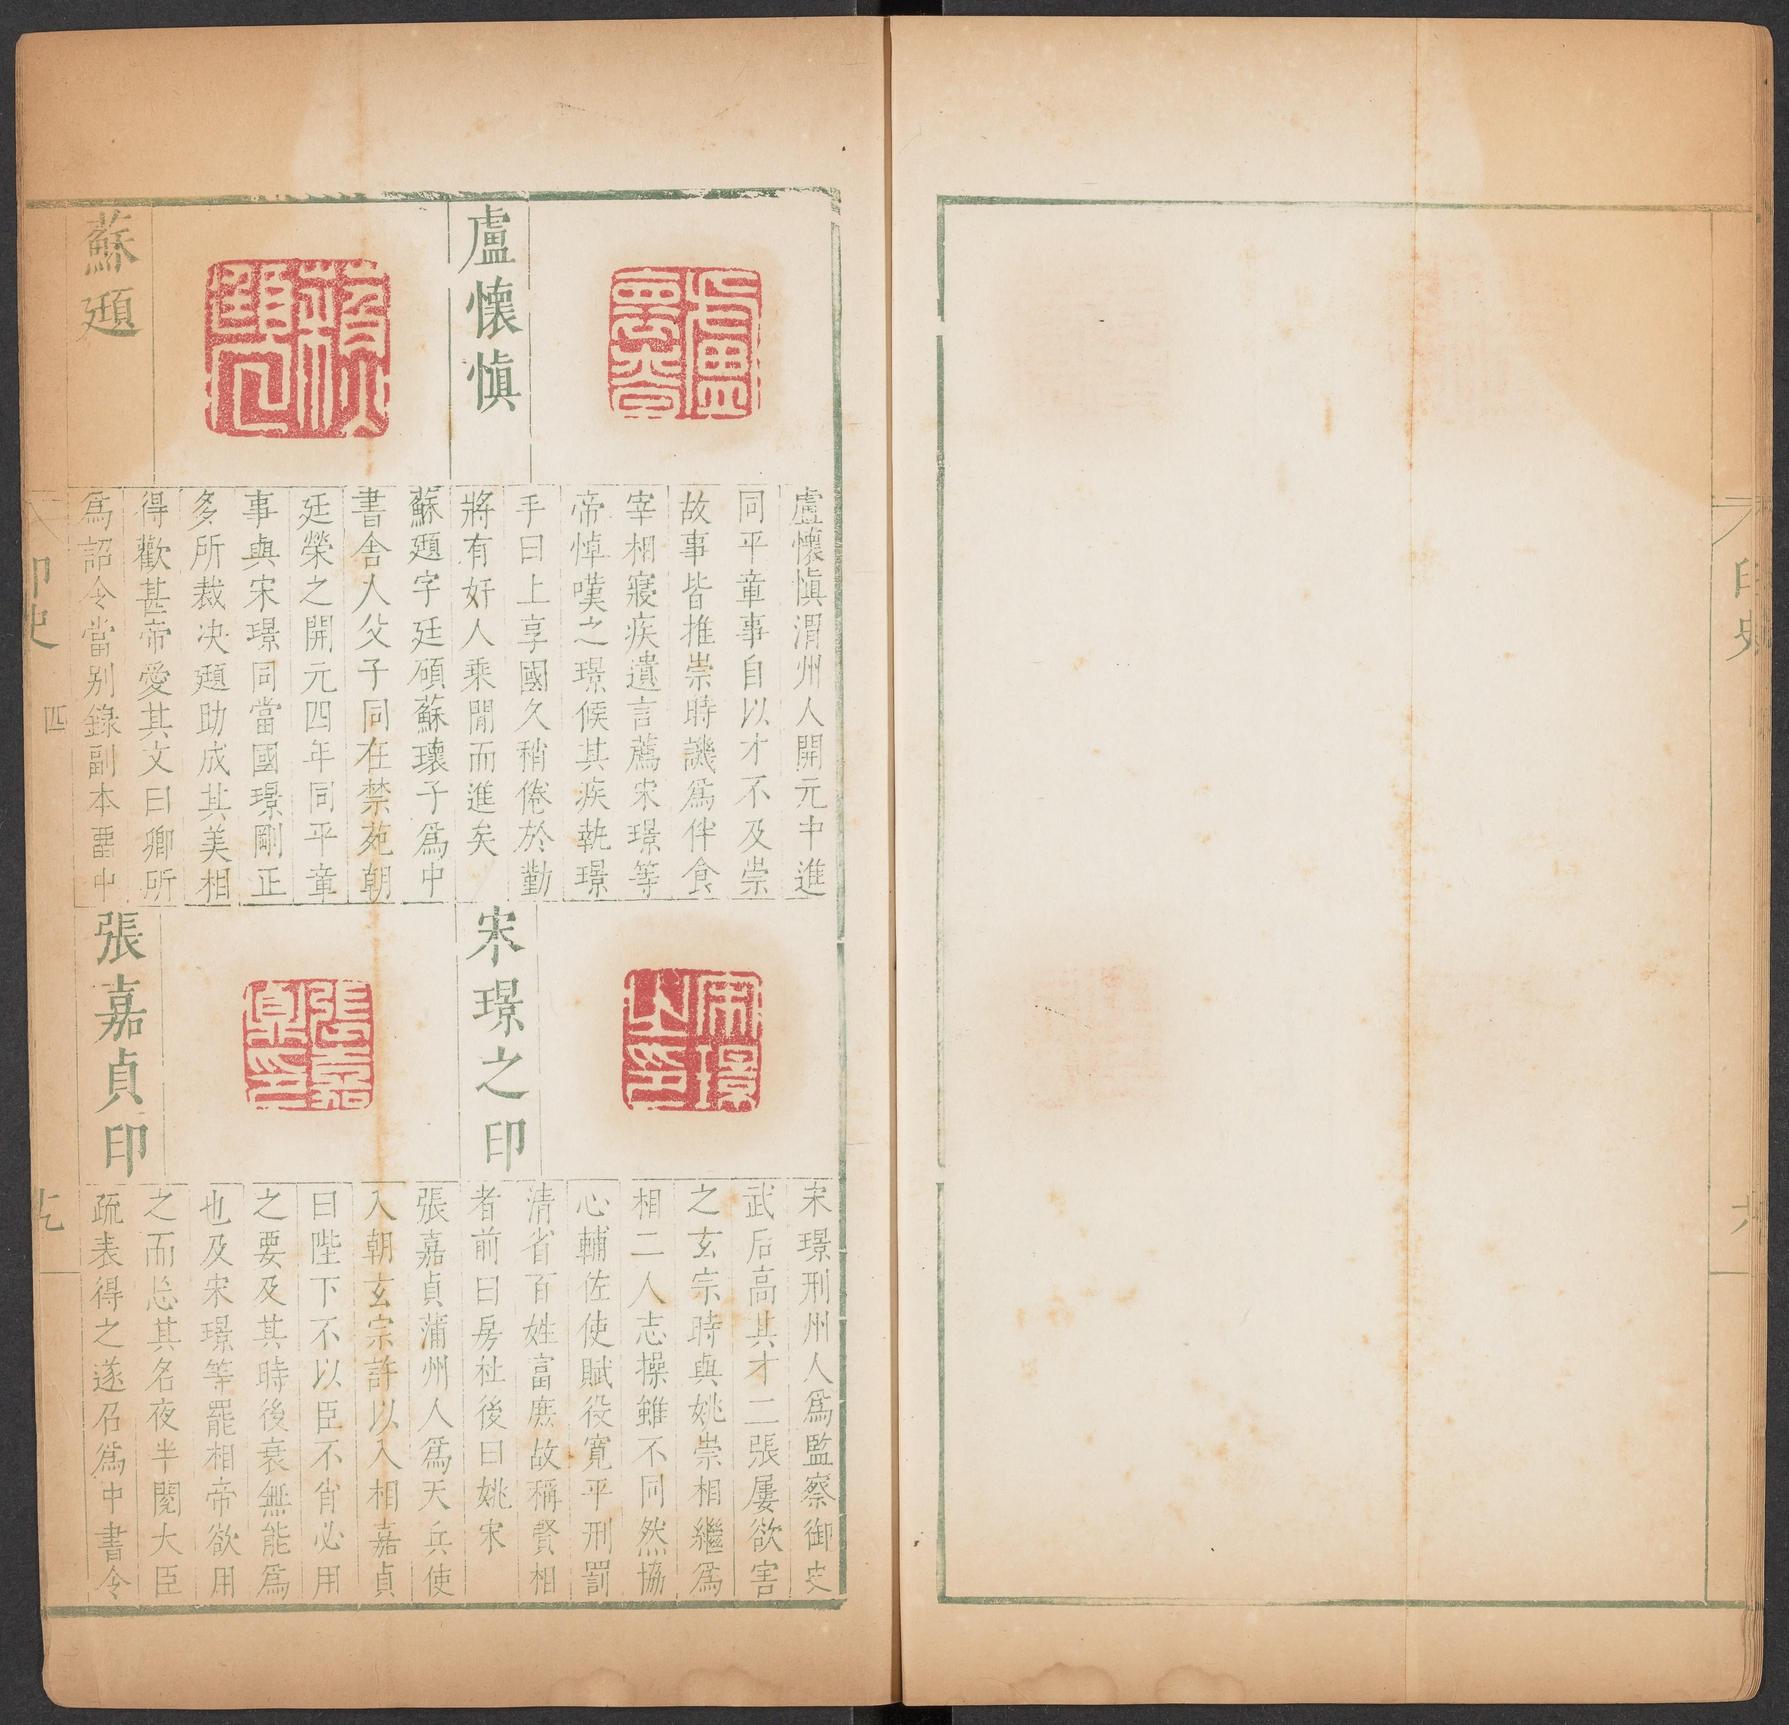 盧懷愼
盧懷愼渭州人開元中進
同平章事自以才不及崇
故事皆推崇時譏爲伴食
宰相寢疾遺言薦宋璟等
帝悼嘆之璟候其疾執璟
手曰上享國久稍倦於勤
將有奸人乘閒而進矣
蘇頲
蘇頲字廷碩蘇瓌子爲中
書舍人父子同在禁苑朝
廷榮之開元四年同平章
事與宋璟同當國璟剛正
多所裁决頲助成其美相
得歡甚帝愛其文曰卿所
爲詔令當别錄副本畱中
宋璟之印
宋璟刑州人爲監察御史
武后高其才二張屢欲害
之玄宗時與姚崇相繼爲
相二人志操雖不同然協
心輔佐使賦役寬平刑罰
清省百姓富庶故稱賢相
者前曰房杜後曰姚宋
張嘉貞印
張嘉貞蒲州人爲天兵使
入朝玄宗許以入相嘉貞
曰陛下不以臣不肖必用
之要及其時後衰無能爲
也及宋璟等罷相帝欲用
之而忘其名夜半閱大臣
疏表得之遂召爲中書令
印史
四